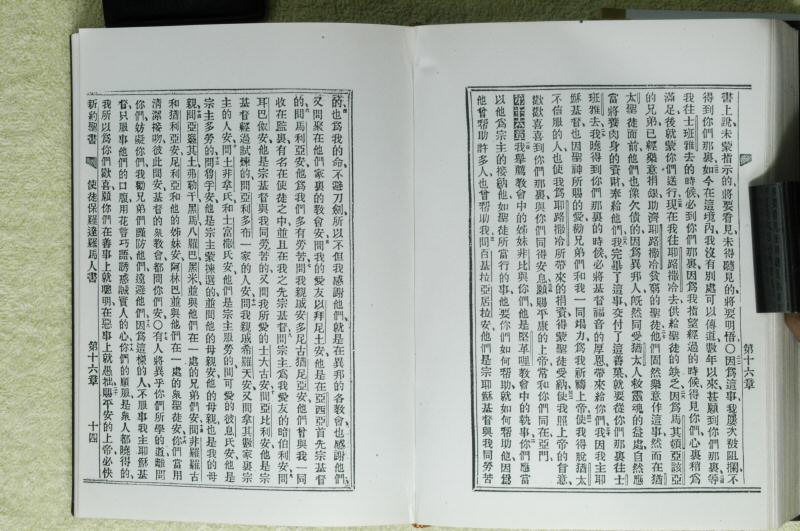 書上說、未蒙指示的、將要看見、未得聽見的、將要明悟、○因爲這事、我屢次被阻攔、不
得到你們那裏、如今在這境內、我沒有別處可以傳道、數年以來、甚願到你們那裏、等
我往士班雅去的時候、必到你們那裏、因爲我指望經過的時候、得見你們、心裏稍爲
滿足、後就蒙你們送行、現在我往耶路撒冷去、供給聖徒的缺乏、因爲馬其頓亞該亞
的兄弟、已經樂意捐錢、助濟耶路撒冷貧窮的聖徒、他們固然樂意作這事、然而在猶
太聖徒面前、他們也像欠債的、因爲異邦人、旣然同受猶太人救靈魂的益處、自然應
當將養肉身的資財、來給他們、我完畢了這事、交付了這善菓、就要從你們那裏往士
班雅去、我曉得到你們那裏的時候、必將基督福音的厚恩、帶來給你們、我因我主耶
穌基督、也因聖神所賜的愛、勸兄弟們、和我一同竭力爲我祈禱上帝、使我得脫猶太
不信服的人、也使我爲耶路撒冷所帶來的捐資、得蒙聖徒受納、使我照上帝的旨意、
歡歡喜喜到你們那裏、與你們同得安息、願賜平康的上帝、常和你們同在、亞門、
第十六章 我舉薦教會中的姊妹非比與你們、他是堅革哩教會中的執事、你們應當
以他爲宗主的、接納他、如聖徒所當行的、事他要你們如何幫助、就如何幫助他、因爲
他曾幫助許多人、也曾幫助我、問百基拉亞居拉安、他們是宗耶穌基督與我同勞苦
第十六章
的、也爲我的命、不避刀劍、所以不但我感謝他們、就是在異邦的各教會、也感謝他們、
又問聚在他們家裏的教會安、問我的愛友以拜尼土安、他是在亞西亞首先宗基督
的、問馬利亞安、他爲我們多有勞苦、問我親戚安多尼古猶尼亞安、他們曾與我一同
收在監裏、有名在使徒之中、並且在我之先宗基督、問宗主爲我愛友的暗伯利安、問
耳巴伽安、他是宗基督與我同勞苦的、又問我所愛的士大古安、問亞比利安、他是宗
基督經過試煉的、問亞利多布一家的人安、問我親戚希羅天安、又問拿其數家裏宗
主的人安、問土非拿氏和土富撒氏安、他們是宗主服勞的、問可愛的彼息氏安、他是
宗主多勞的、問魯孚安、他是宗主蒙揀選的、並問他的母親安、他的母親、也是我的母
親、問亞遜其土弗勒干黑馬八羅巴黑米、並與他們在一處的兄弟們安、問非羅羅古
和猶利亞、安尼利亞和他的姊妹安、阿林巴、並與他們在一處的衆聖徒安、你們當用
清潔接吻、彼此問安、基督的衆教會都問你們安、○有人將異乎你們所學的道、離間
你們、妨礙你們、我勸兄弟們、謹防他們、遠避他們、因爲這樣的人、不服事我主耶穌基
督、只服事他們的口腹、用花言巧語、誘惑誠實人的心、你們的順服、是衆人都曉得的、
我所以爲你們歡喜、願你們在善事上就聰明、在惡事上就愚拙、賜平安的上帝、必快
新約聖書 使徒保羅達羅馬人書 第十六章 十四